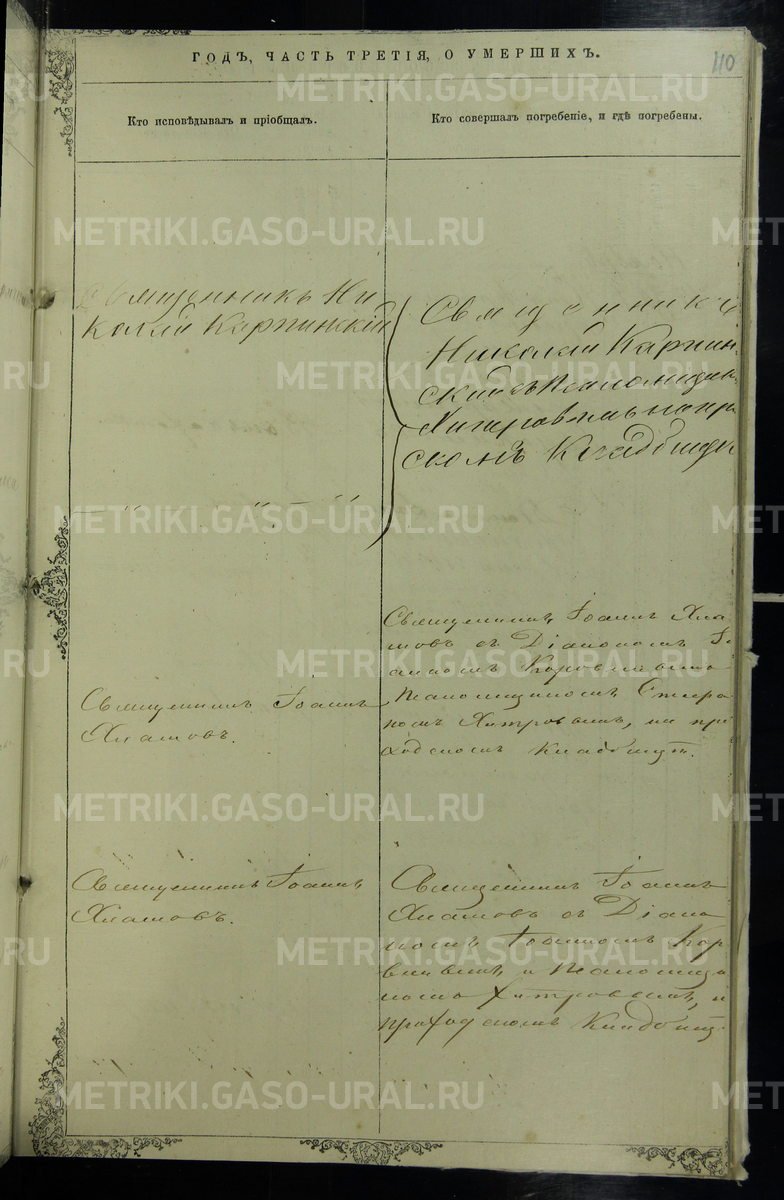 ГОДЪ, ЧАСТЬ ТРЕТІЯ, О УМЕРШИХЪ.
110
Кто исповѣдывалъ и пріобщалъ.
Кто совершалъ погребеніе, и гдѣ погребены.
Священникъ Ни
колай Карпинскій
Священникъ
Николай Карпин-
скій съ Псаломщик
Хитровымъ на пр
скомъ Кладбищѣ
Священникъ Іоаннъ
Хламовъ.
Священникъ Іоаннъ Хла
мовъ съ Діакономъ Іо
анномъ Коровинымъ
Псаломщикомъ Стефа
номъ Хитровымъ, на при
ходскомъ кладбищѣ.
Священникъ Іоаннъ
Хламовъ.
Священникъ Іоаннъ
Хламовъ съ Діако
номъ Іоанномъ Кор
и Псаломщи
комъ Хитровымъ, н
приходскомъ Кладбищ
METRIKI.GASO-URAL.RU